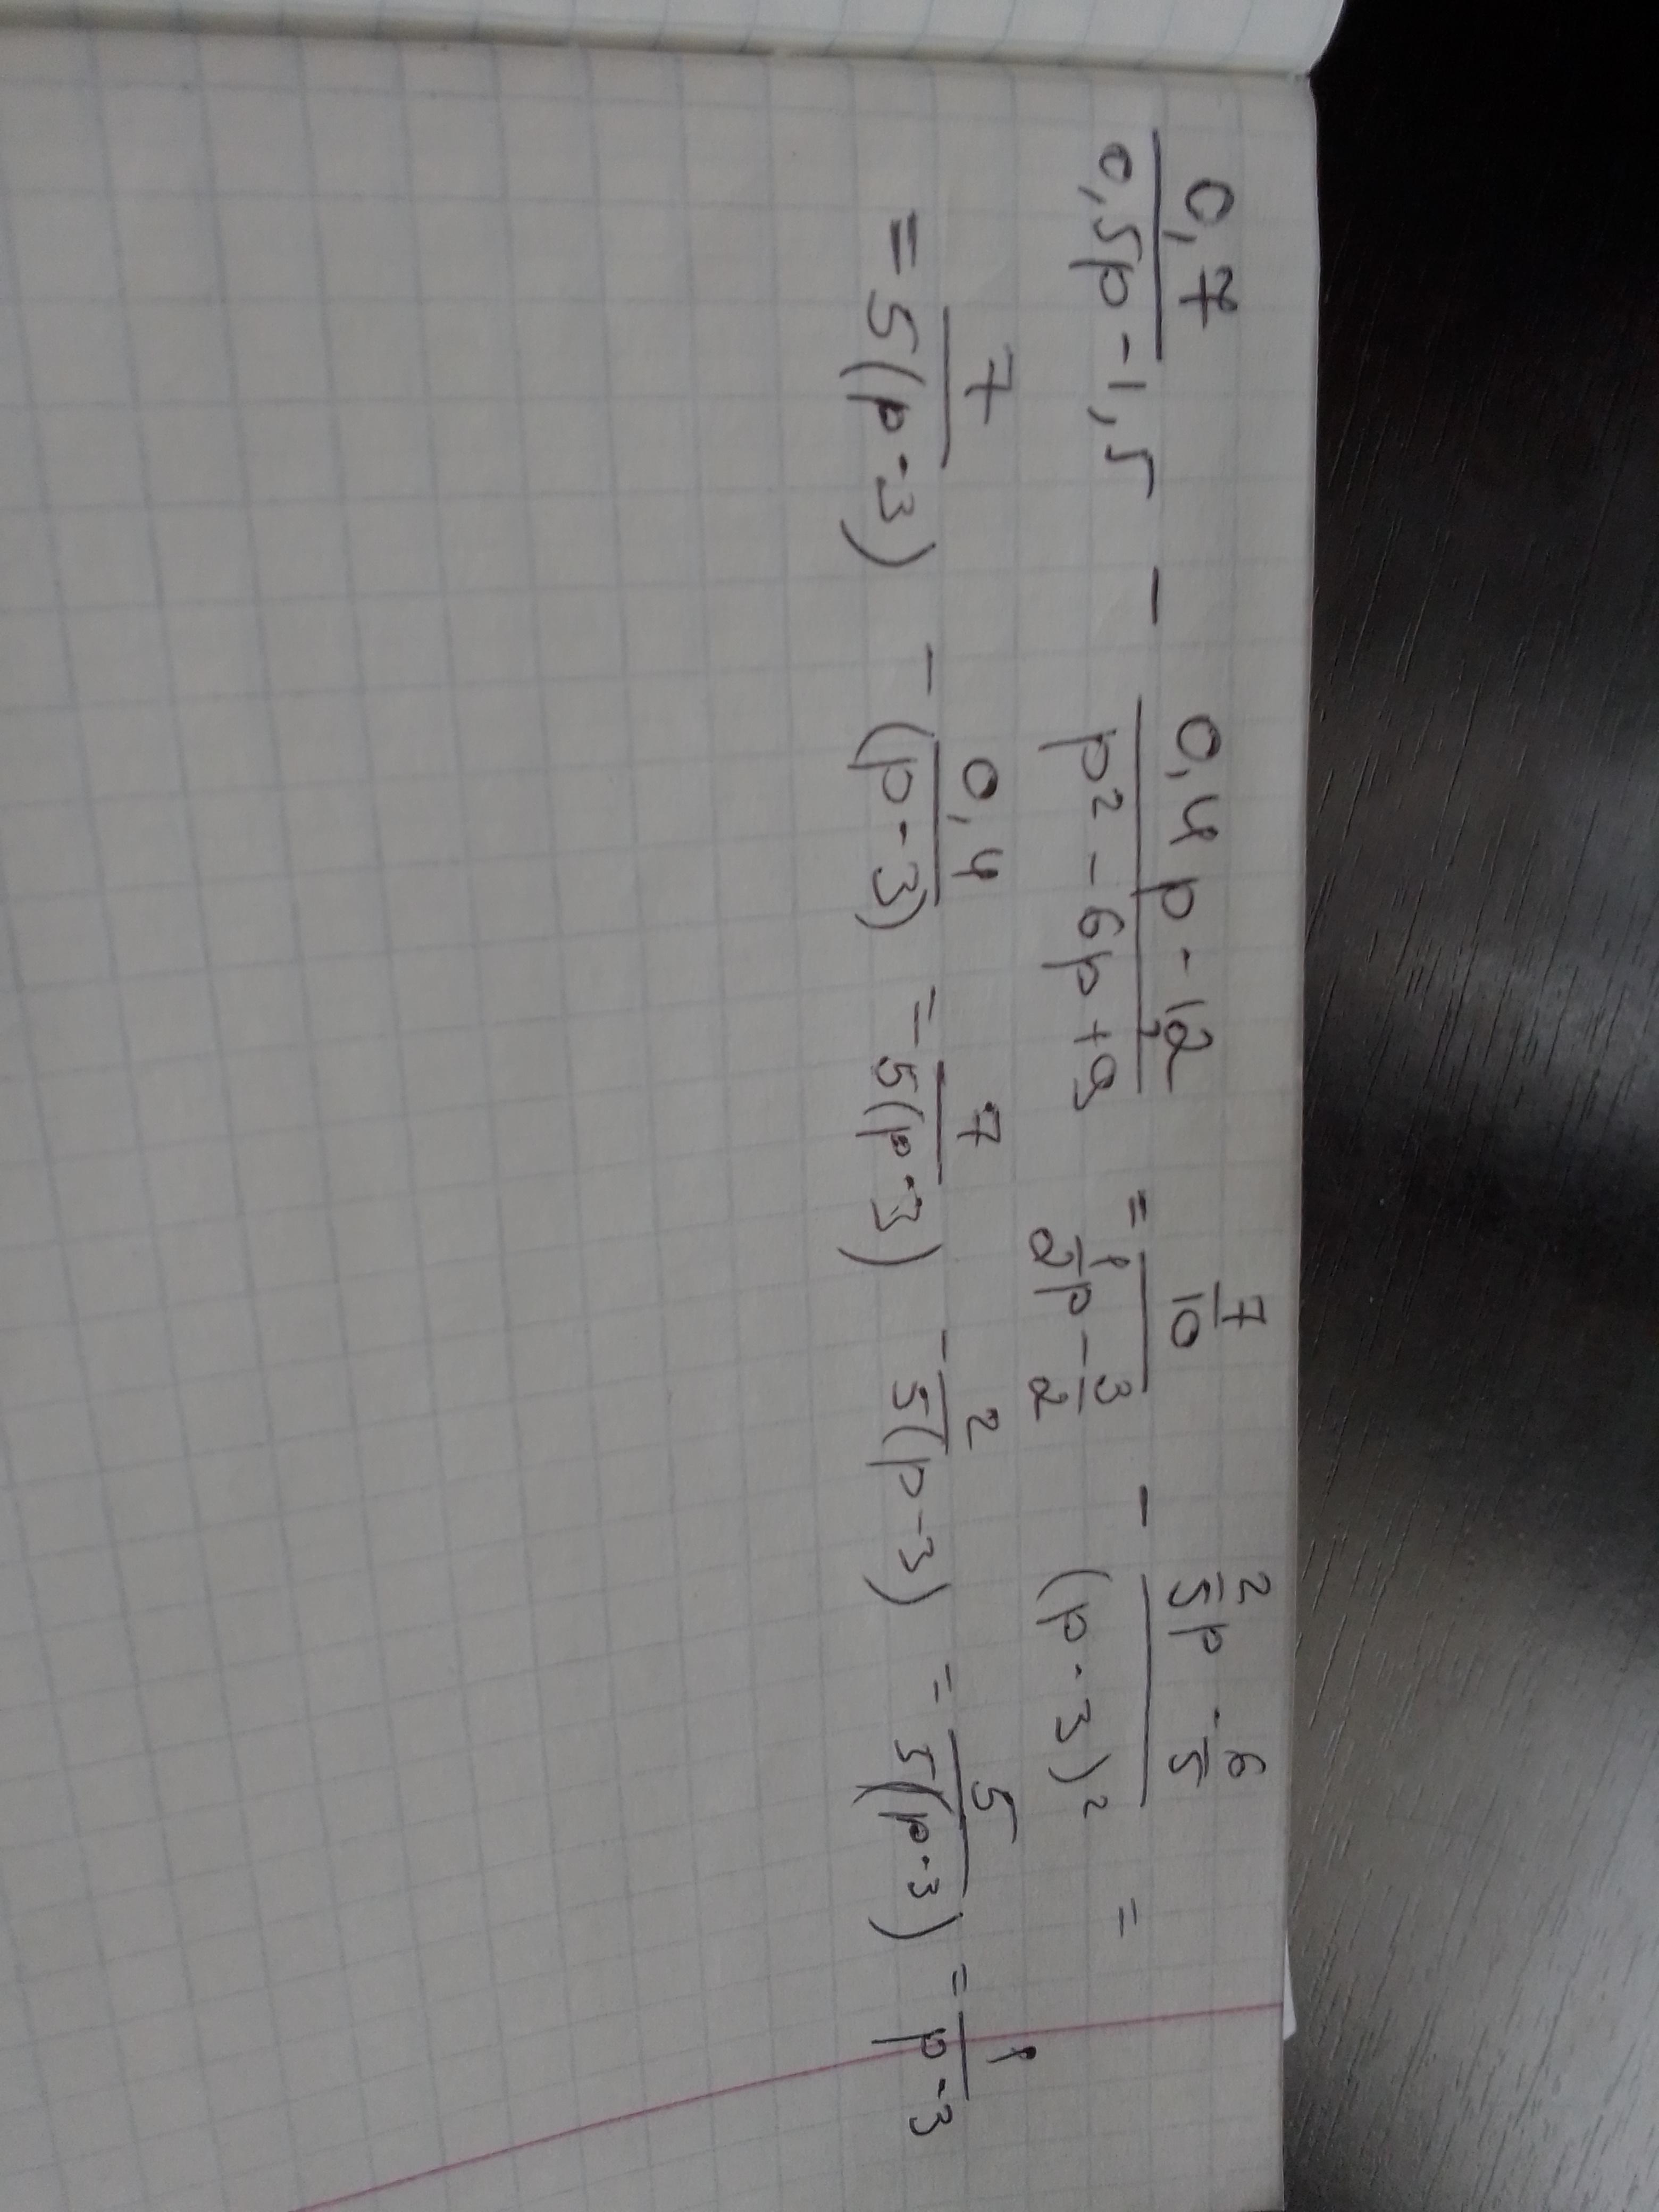 0,7/(0,5p-1,5) - (0,4p-1,2)/(p²-6p+9) = (7/10)/(1/2p-3/2) - (2/5p-6/5)/(p-3)² =
= 7/(5(p-3)) - 0,4/(p-3) = 7/(5(p-3)) - 2/(5(p-3)) = 5/(5(p-3)) = 1/(p-3)